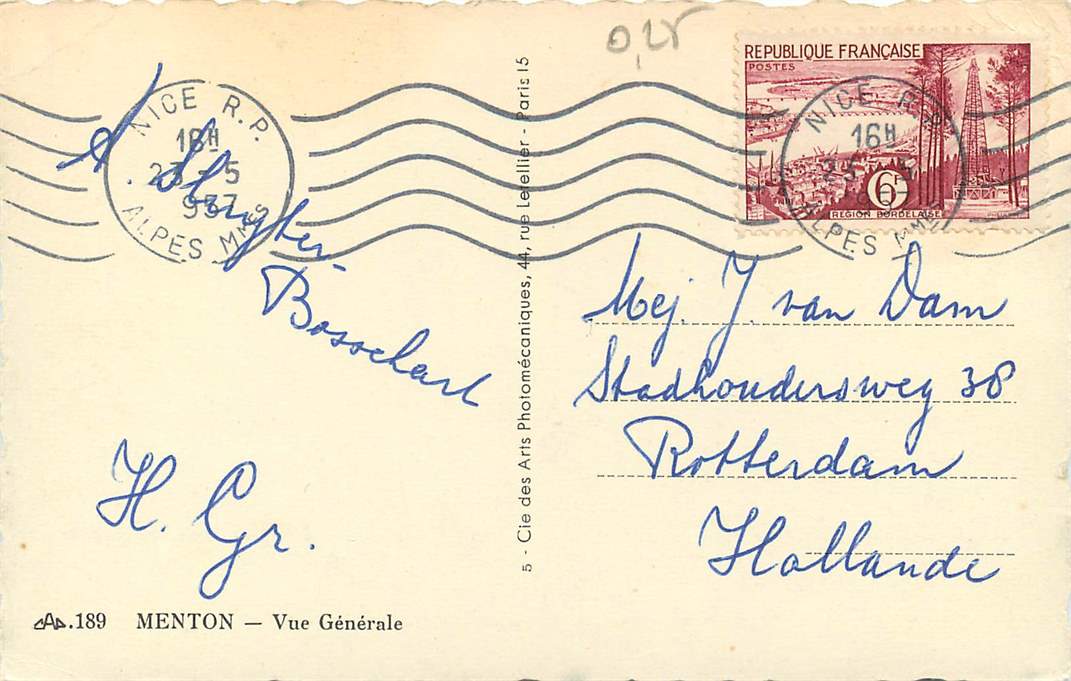 0,25
REPUBLIQUE FRANÇAISE
POSTES
6F
RÉGION BORDELAISE
NICE R.P.
16H
23-5
1957
ALPES MMES
NICE R.P.
16H
ALPES MMES
Bosschart
H. Gr.
5 - Cie des Arts Photomécaniques, 44, rue Letellier - Paris 15
Mej. J. van Dam
Stadhoudersweg 38
Rotterdam
Hollande
CAP.189 MENTON — Vue Générale